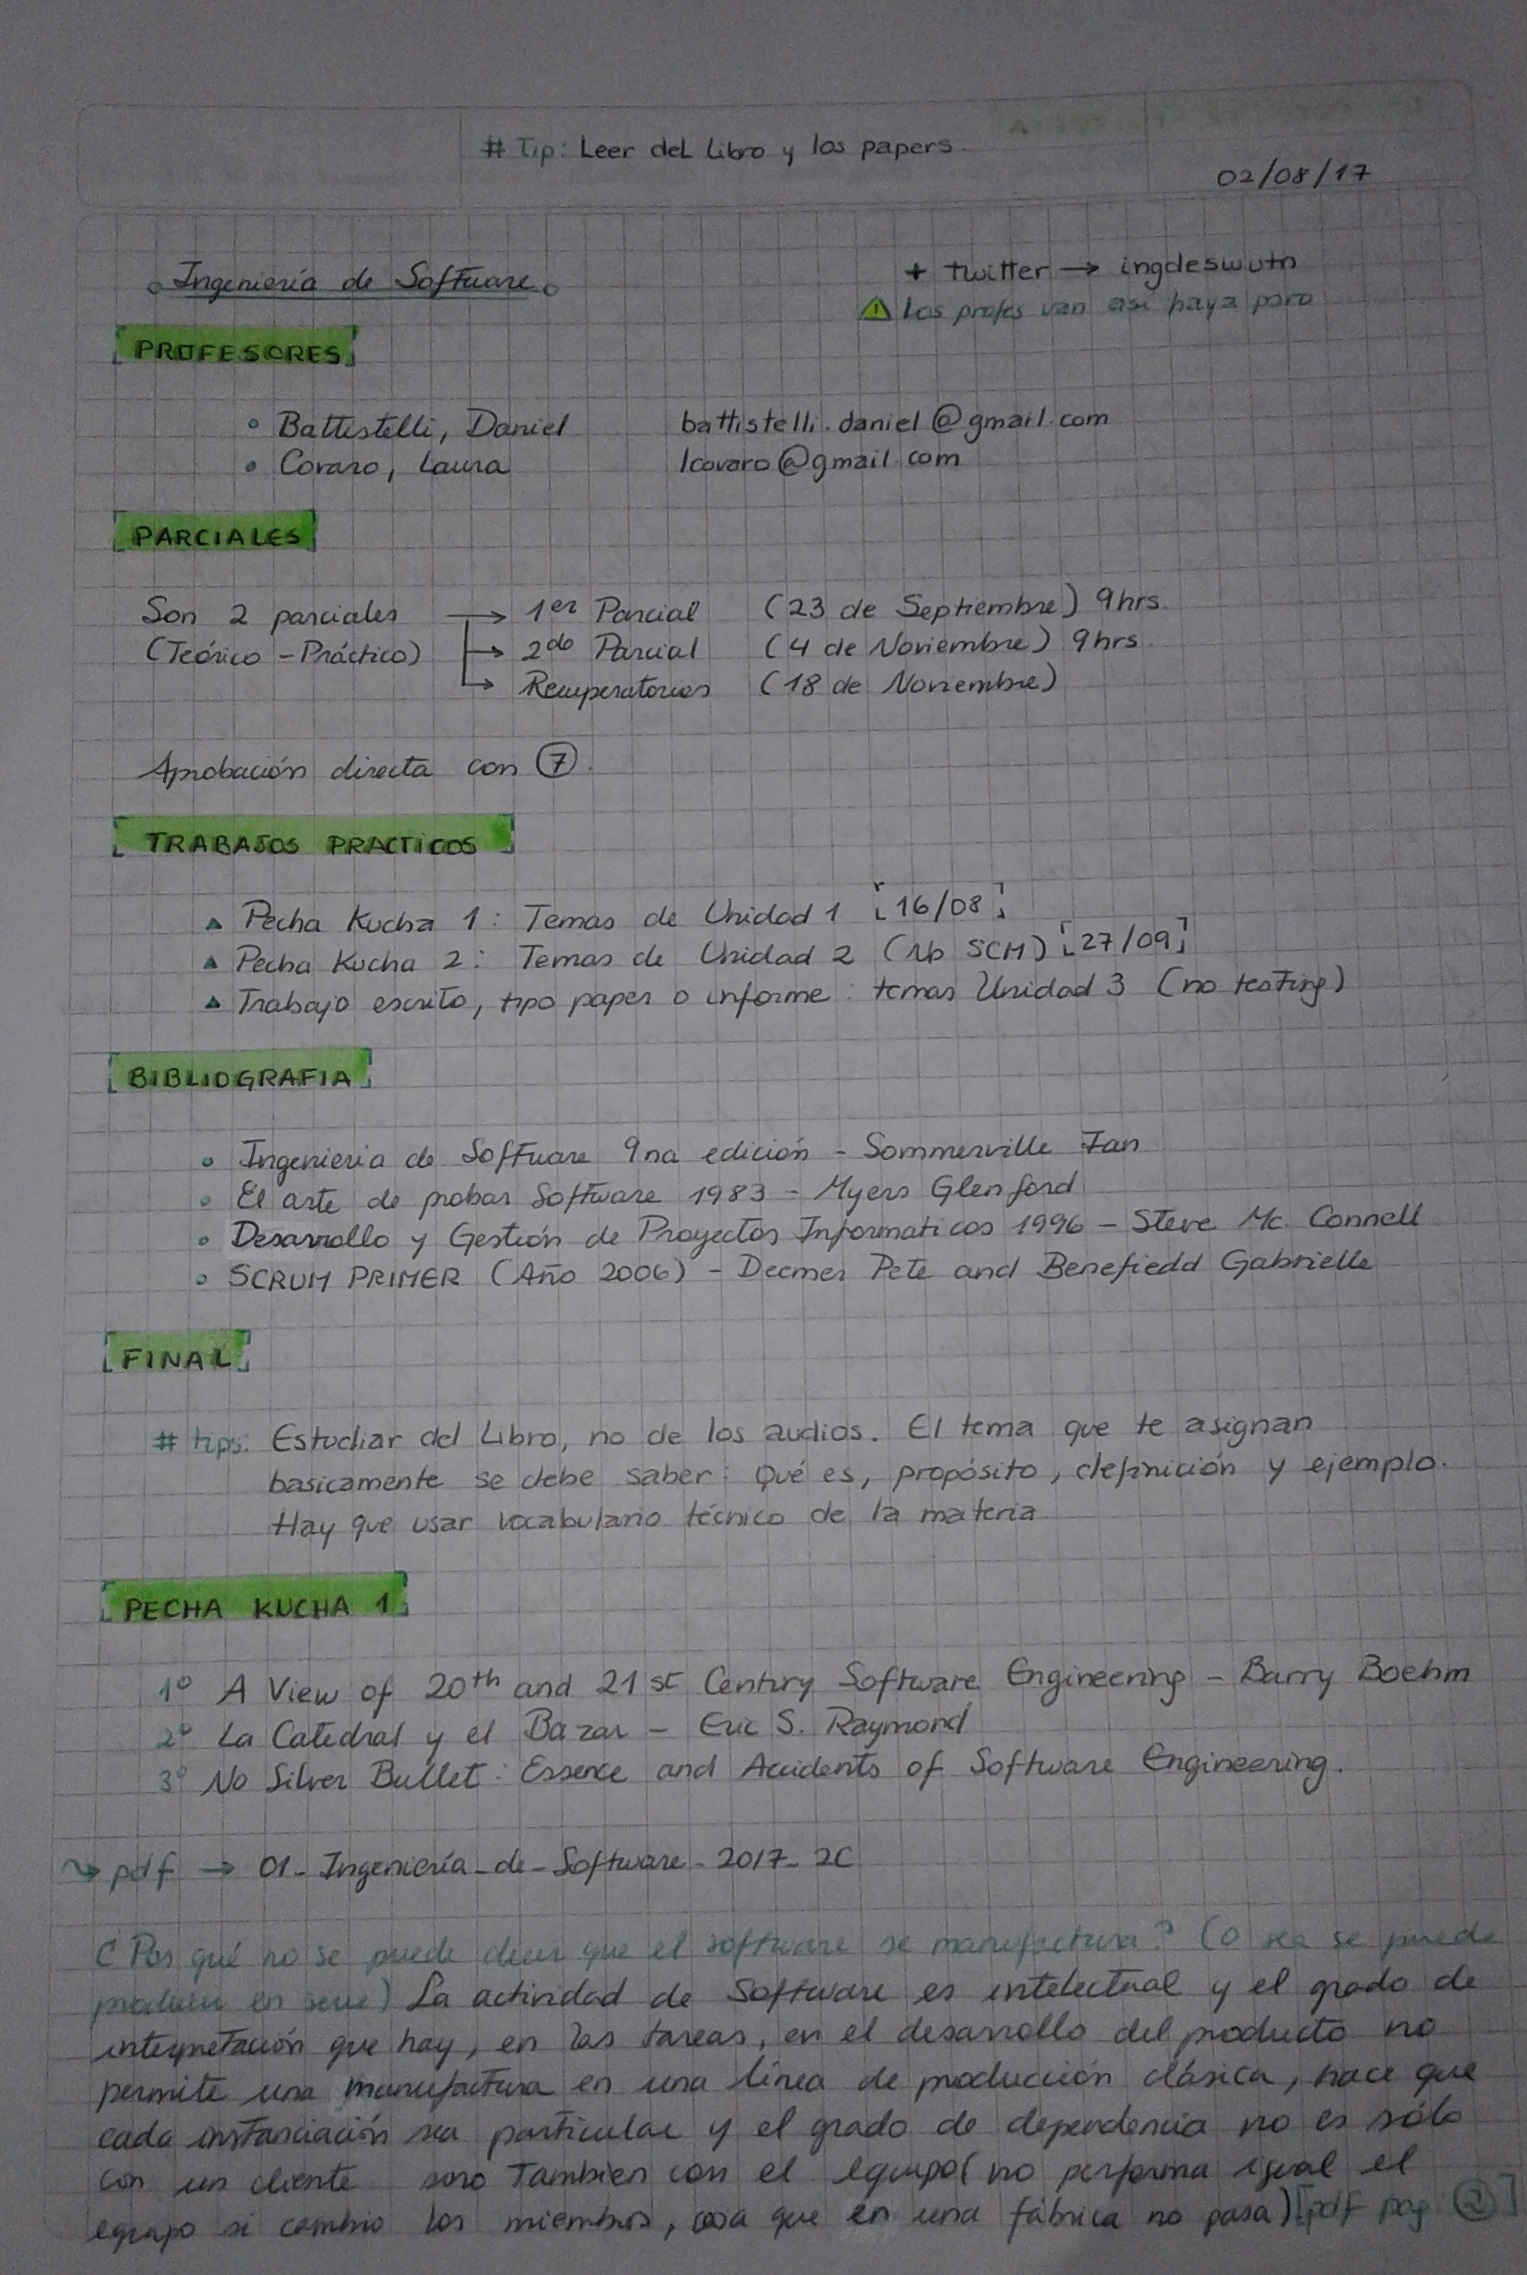 # Tip: Leer del Libro y los papers.
02/08/17
Ingeniería de Software
+ twitter → ingdeswutn
Los profes van así haya paro
PROFESORES
• Battistelli, Daniel battistelli.daniel@gmail.com
• Covaro, Laura lcovaro@gmail.com
PARCIALES
Son 2 parciales → 1er Parcial (23 de Septiembre) 9hrs.
(Teórico - Práctico) → 2do Parcial (4 de Noviembre) 9hrs.
→ Recuperatorios (18 de Noviembre)
Aprobación directa con 7.
TRABAJOS PRACTICOS
▲ Pecha Kucha 1: Temas de Unidad 1 [16/08]
▲ Pecha Kucha 2: Temas de Unidad 2 (No SCM) [27/09]
▲ Trabajo escrito, tipo paper o informe: temas Unidad 3 (no testing)
BIBLIOGRAFIA
• Ingenieria de Software 9na edición - Sommerville Ian
• El arte de probar Software 1983 - Myers Glenford
• Desarrollo y Gestión de Proyectos Informaticos 1996 - Steve Mc. Connell
• SCRUM PRIMER (Año 2006) - Deemer Pete and Benefiedd Gabrielle
FINAL
# tips: Estudiar del Libro, no de los audios. El tema que te asignan
basicamente se debe saber: Qué es, propósito, definición y ejemplo.
Hay que usar vocabulario técnico de la materia.
PECHA KUCHA 1
1º A View of 20th and 21st Century Software Engineering - Barry Boehm
2º La Catedral y el Bazar - Eric S. Raymond
3º No Silver Bullet: Essence and Accidents of Software Engineering.
pdf → 01-Ingeniería-de-Software-2017-2C
¿Por qué no se puede decir que el software se manufactura? (o sea se puede
producir en serie) La actividad de Software es intelectual y el grado de
interpretación que hay, en las tareas, en el desarrollo del producto no
permite una manufactura en una línea de producción clásica, hace que
cada instanciación sea particular y el grado de dependencia no es sólo
con un cliente sino Tambien con el equipo (no performa igual el
equipo si cambio los miembros, cosa que en una fábrica no pasa) [pdf pag 2]